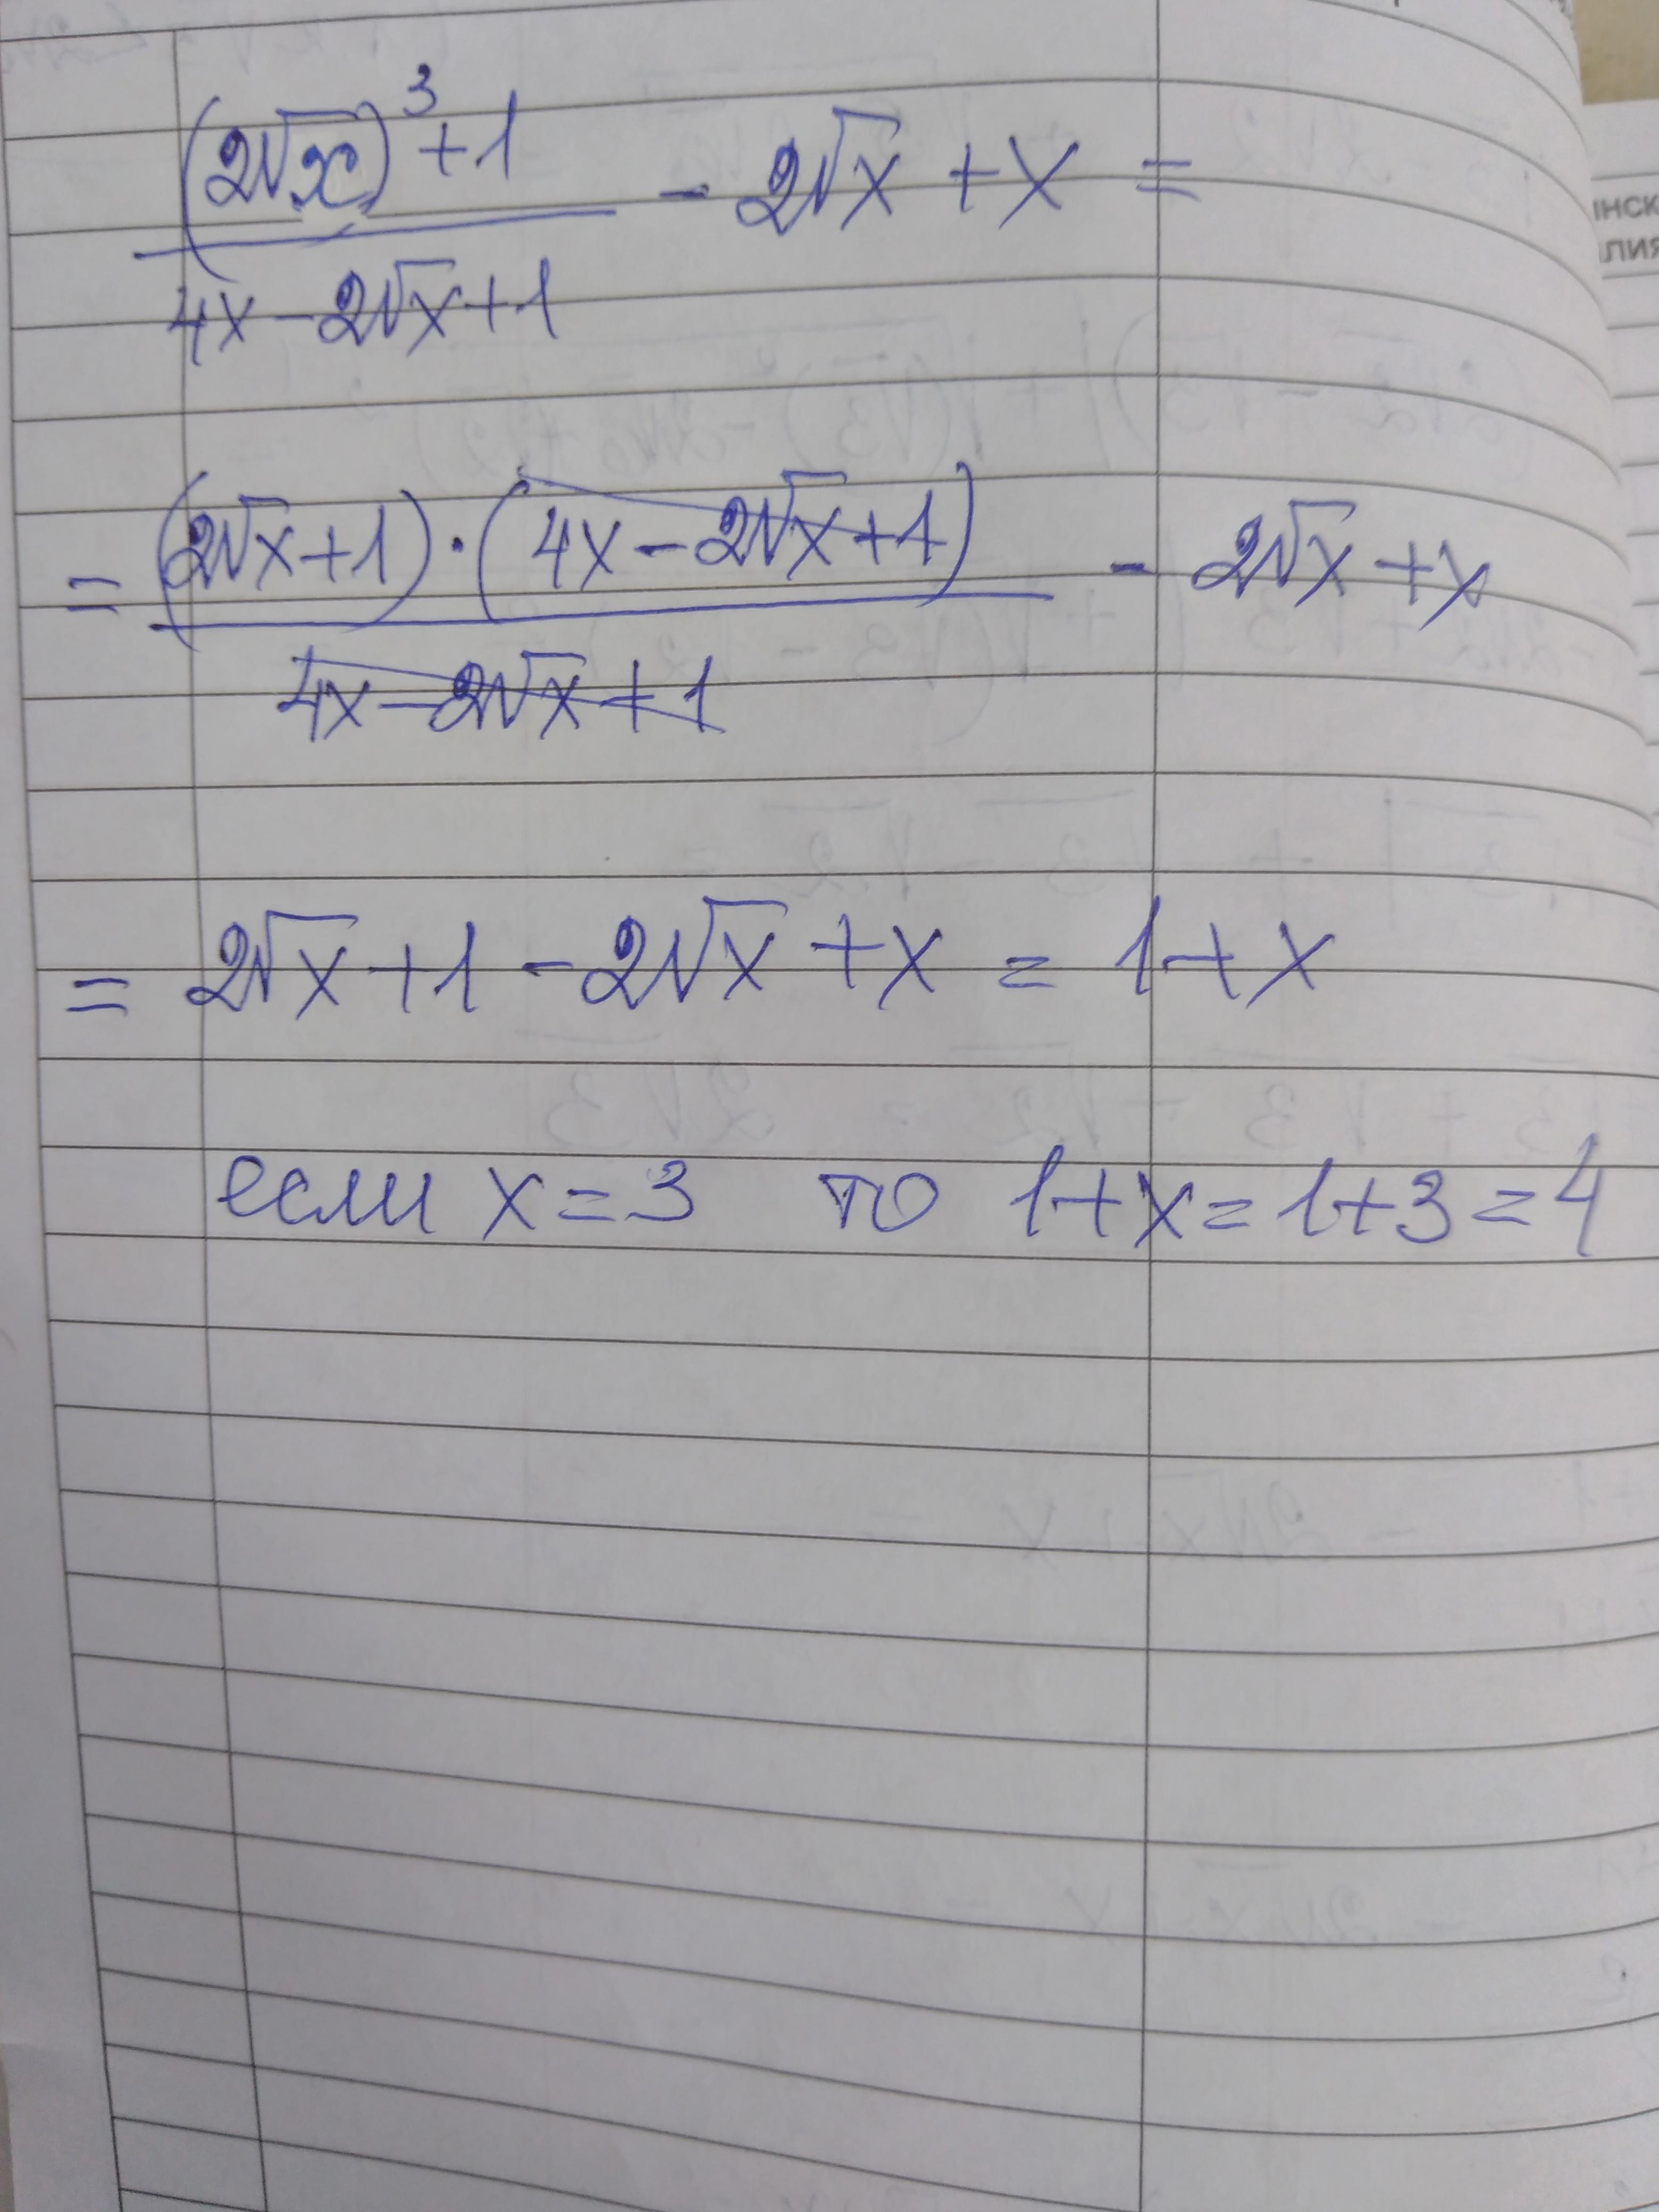 (2√x)³+1 / 4x-2√x+1 - 2√x + x =
= (2√x+1)·(4x-2√x+1) / 4x-2√x+1 - 2√x+x
= 2√x+1-2√x+x = 1+x
если x=3 то 1+x=1+3=4